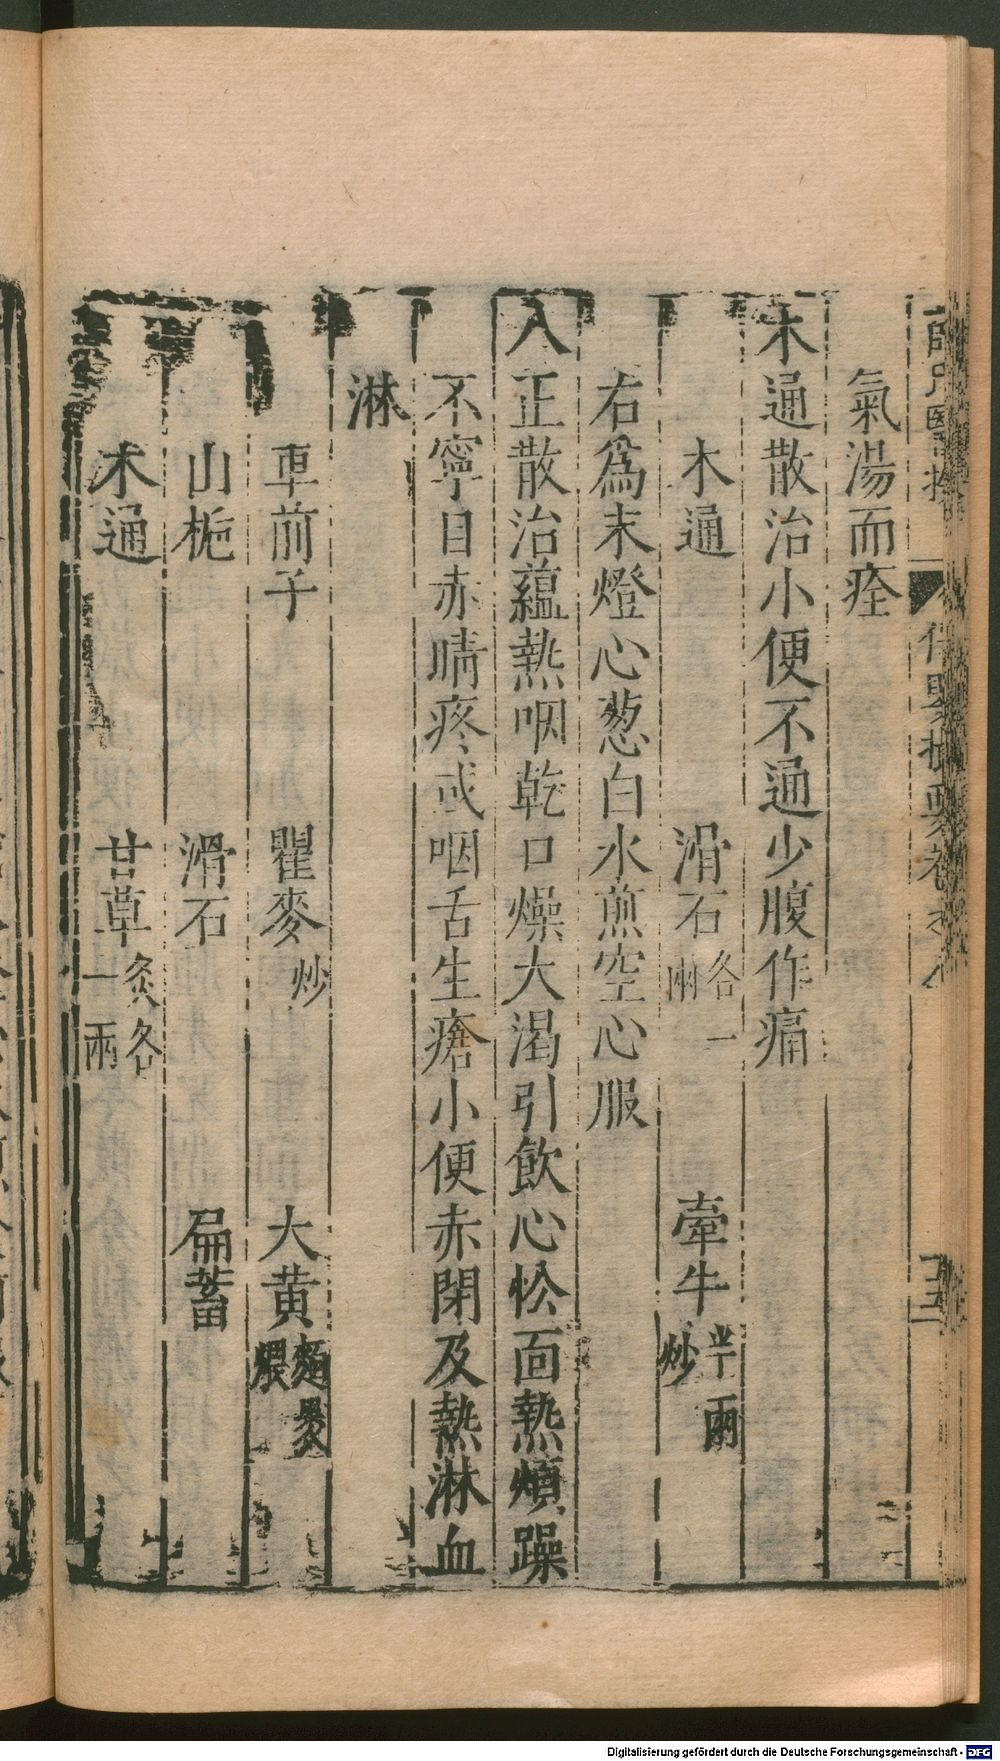 氣湯而痊
木通散治小便不通少腹作痛
木通 滑石各一兩 牽牛半兩炒
右爲末燈心葱白水煎空心服
八正散治蘊熱咽乾口燥大渴引飲心忪面熱煩躁
不寧目赤睛疼或咽舌生瘡小便赤閉及熱淋血
淋
車前子 瞿麥炒 大黄麵裹煨
山梔 滑石 扁蓄
木通 甘草灸各一兩
Digitalisierung gefördert durch die Deutsche Forschungsgemeinschaft - DFG